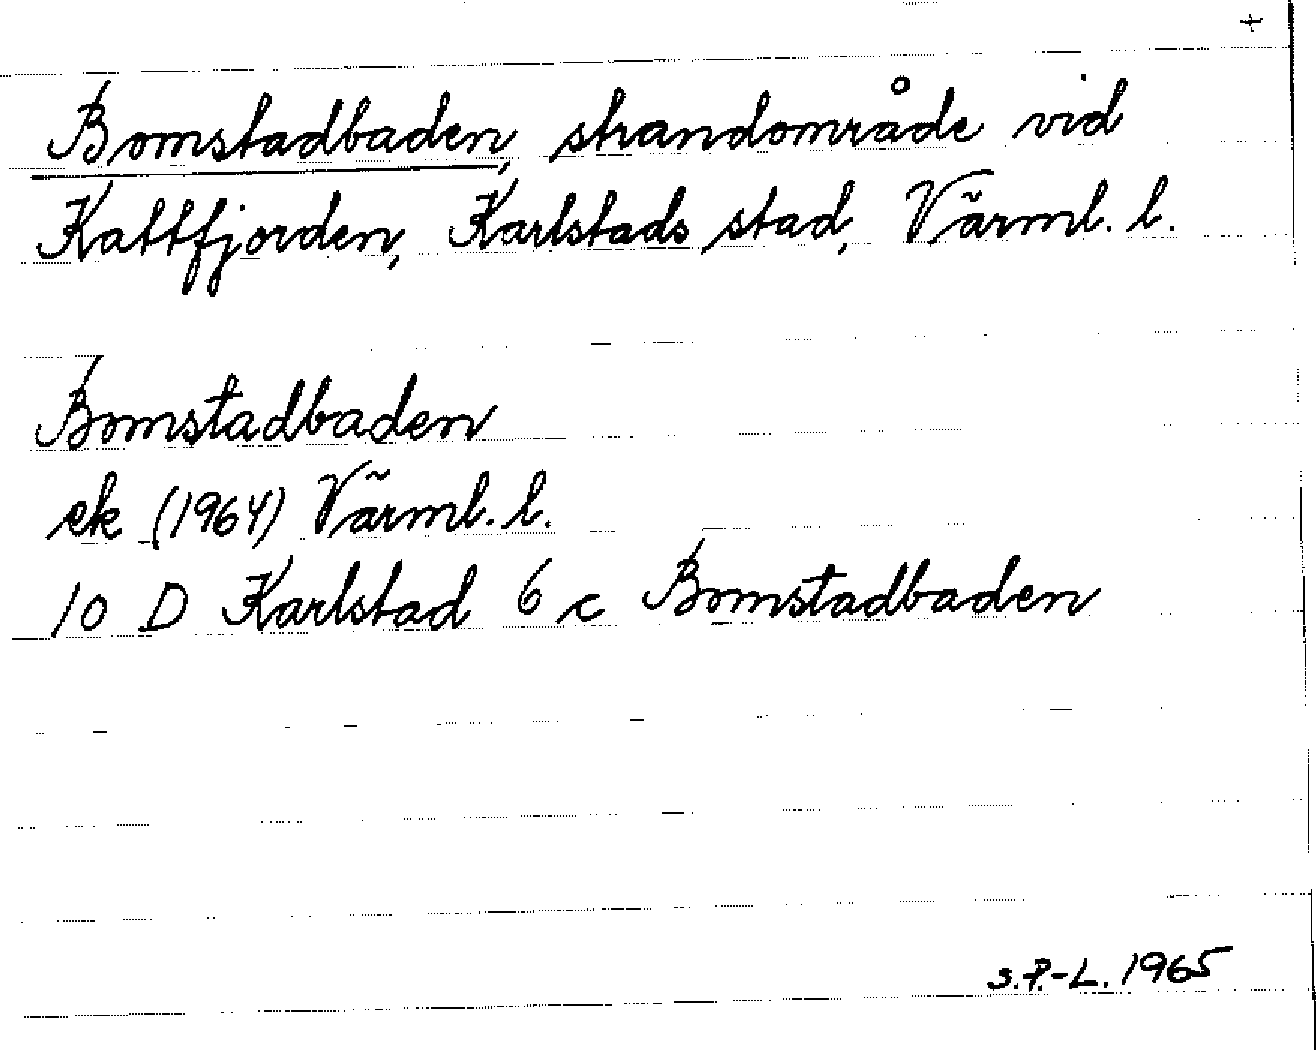 +
Bomstadbaden, strandområde vid
Kattfjorden, Karlstads stad, Värml. l.
Bomstadbaden
ek (1964) Värml. l.
10 D Karlstad 6 c Bomstadbaden
S.P.-L. 1965